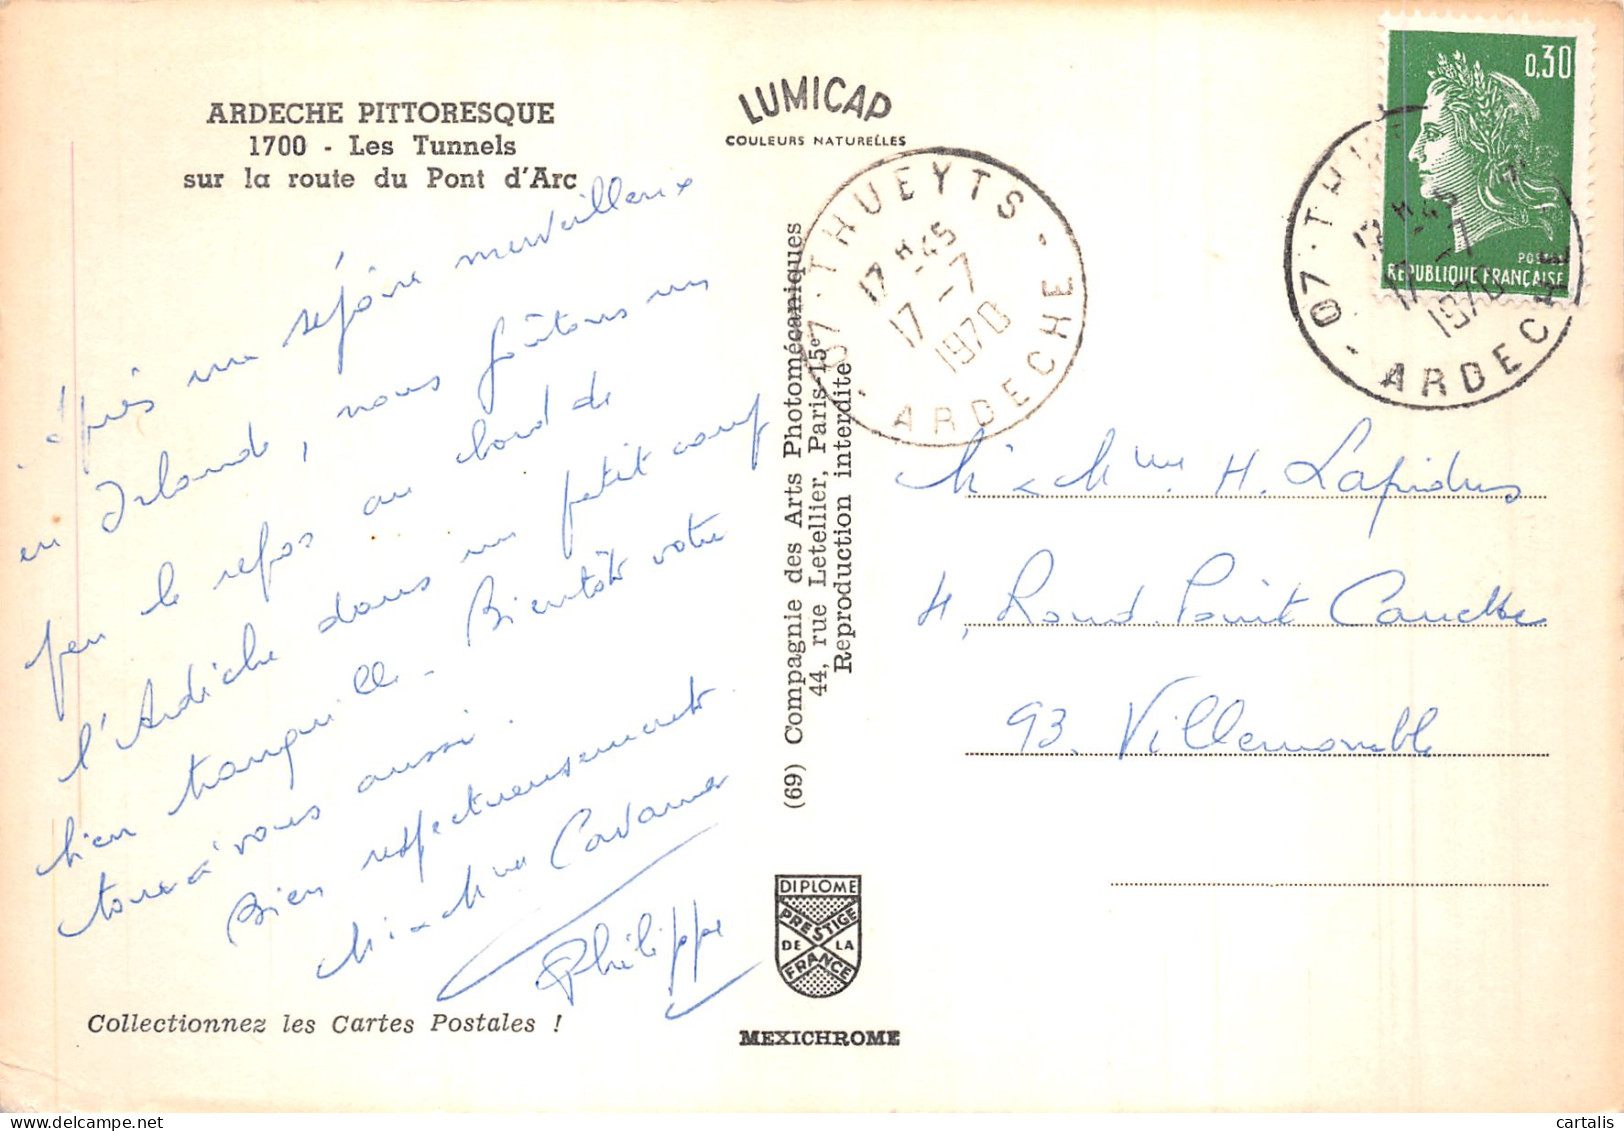 ARDECHE PITTORESQUE
1700 - Les Tunnels
sur la route du Pont d'Arc
LUMICAP
COULEURS NATURELLES
après un séjour merveilleux
en Irlande, nous goûtons un
peu le repos au bord de
l'Ardèche dans un petit camp
bien tranquille. Bientôt votre
tour à vous aussi.
Bien respectueusement
Mr & Mme
Philippe
Collectionnez les Cartes Postales !
(69) Compagnie des Arts Photomécaniques
44, rue Letellier, Paris-15e
Reproduction interdite
DIPLOME
PRESTIGE
DE LA
FRANCE
MEXICHROME
07 - THUEYTS - ARDECHE
17 H 45
17 - 7
1970
0,30
POSTES
REPUBLIQUE FRANÇAISE
07 - THUEYTS - ARDECHE
17 H 45
17 - 7
1970
Mr & Mme H. Lapidus
4, Rond Point Canette
93. Villemomble
www.cartalis.delcampe.net
cartalis